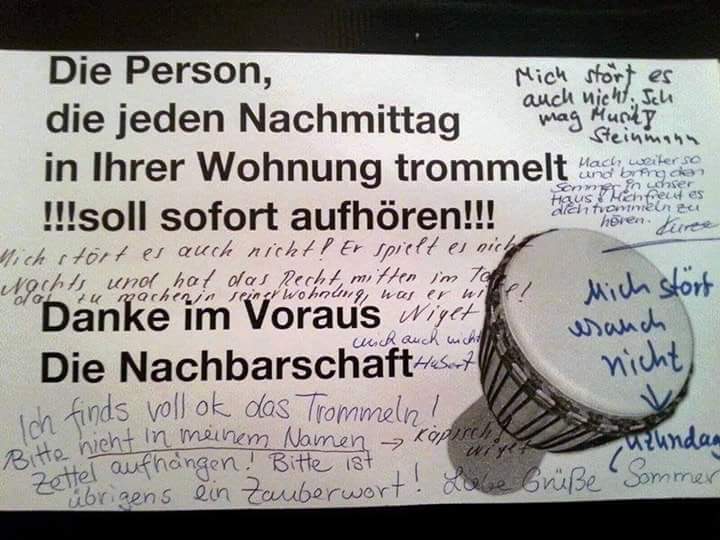 Die Person,
die jeden Nachmittag
in Ihrer Wohnung trommelt
!!!soll sofort aufhören!!!
Danke im Voraus
Die Nachbarschaft
Mich stört es
auch nicht. Ich
mag Musik!
Steinmann
Mach weiter so
und bring den
Sommer in unser
Haus! Mich freut es
dich trommeln zu
hören.
Mich stört es auch nicht! Er spielt es nicht
Nachts und hat das Recht mitten im Tag
das zu machen in seiner Wohndung, was er will!
Niget
mich auch nicht
Hubert
Mich stört
es auch
nicht
Ich finds voll ok das Trommeln!
Bitte nicht in meinem Namen → Kapisch!
Niget
Zettel aufhängen! Bitte ist
übrigens ein Zauberwort! Liebe Grüße Sommer